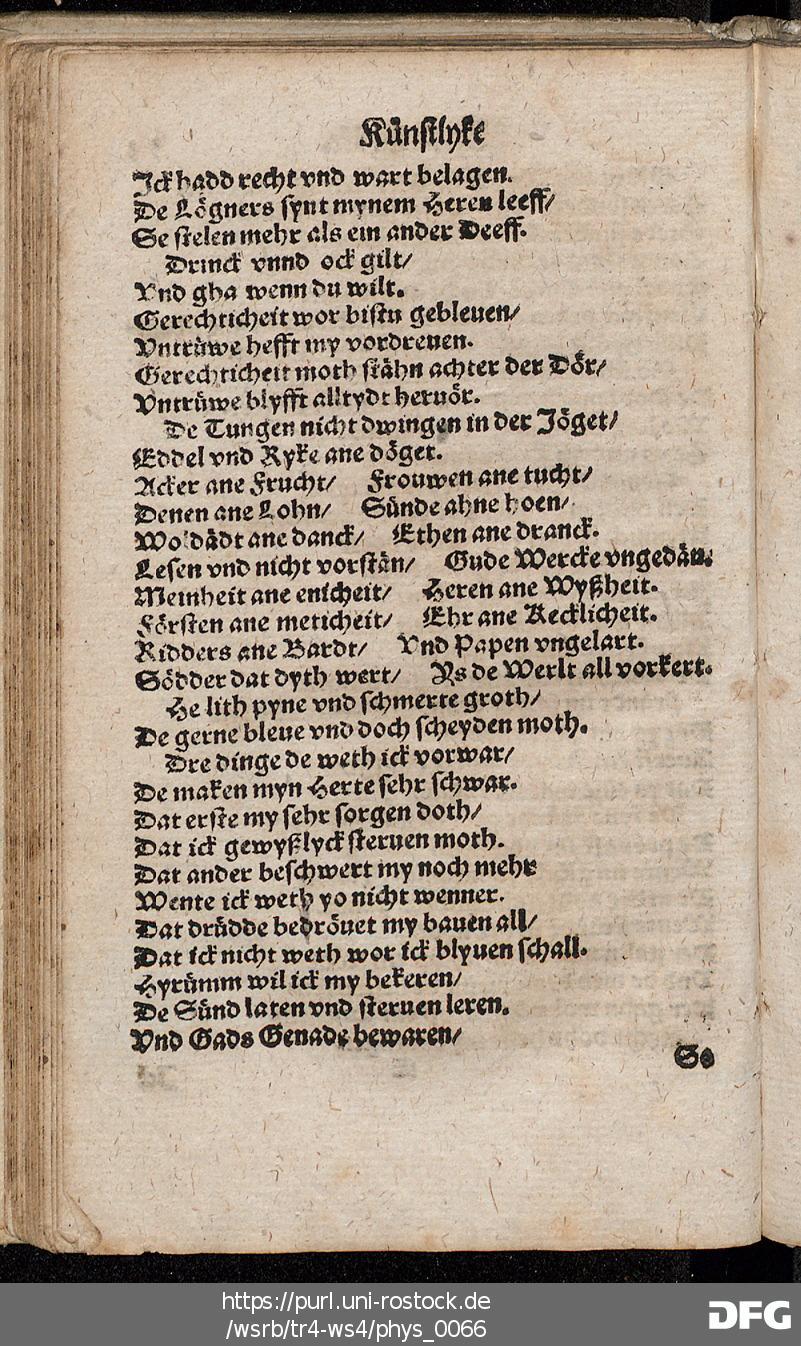 Künstlyke
Ick hadd recht vnd wart belagen.
De Lögners synt mynem Heren leeff/
Se stelen mehr als ein ander Deeff.
Drinck vnnd ock gilt/
Vnd gha wenn du wilt.
Gerechticheit wor bistu gebleuen/
Vntrüwe hefft my vordreuen.
Gerechticheit moth stähn achter der Dör/
Vntrüwe blyfft alltydt heruör.
De Tungen nicht dwingen in der Jöget/
Eddel vnd Ryke ane döget.
Acker ane Frucht/ Frouwen ane tucht/
Denen ane Lohn/ Sünde ahne hoen/
Woldädt ane danck/ Ethen ane dranck.
Lesen vnd nicht vorstän/ Gude Wercke vngedän.
Meinheit ane enicheit/ Heren ane Wyßheit.
Försten ane meticheit/ Ehr ane Recklicheit.
Ridders ane Bardt/ Vnd Papen vngelart.
Södder dat dyth wert/ Ys de Werlt all vorkert.
He lith pyne vnd schmerte groth/
De gerne bleue vnd doch scheyden moth.
Dre dinge de weth ick vorwar/
De maken myn Herte sehr schwar.
Dat erste my sehr sorgen doth/
Dat ick gewyßlyck steruen moth.
Dat ander beschwert my noch mehr
Wente ick weth yo nicht wenner.
Dat drüdde bedröuet my bauen all/
Dat ick nicht weth wor ick blyuen schall.
Hyrümm wil ick my bekeren/
De Sünd laten vnd steruen leren.
Vnd Gads Genade bewaren/
So
https://purl.uni-rostock.de
/wsrb/tr4-ws4/phys_0066
DFG